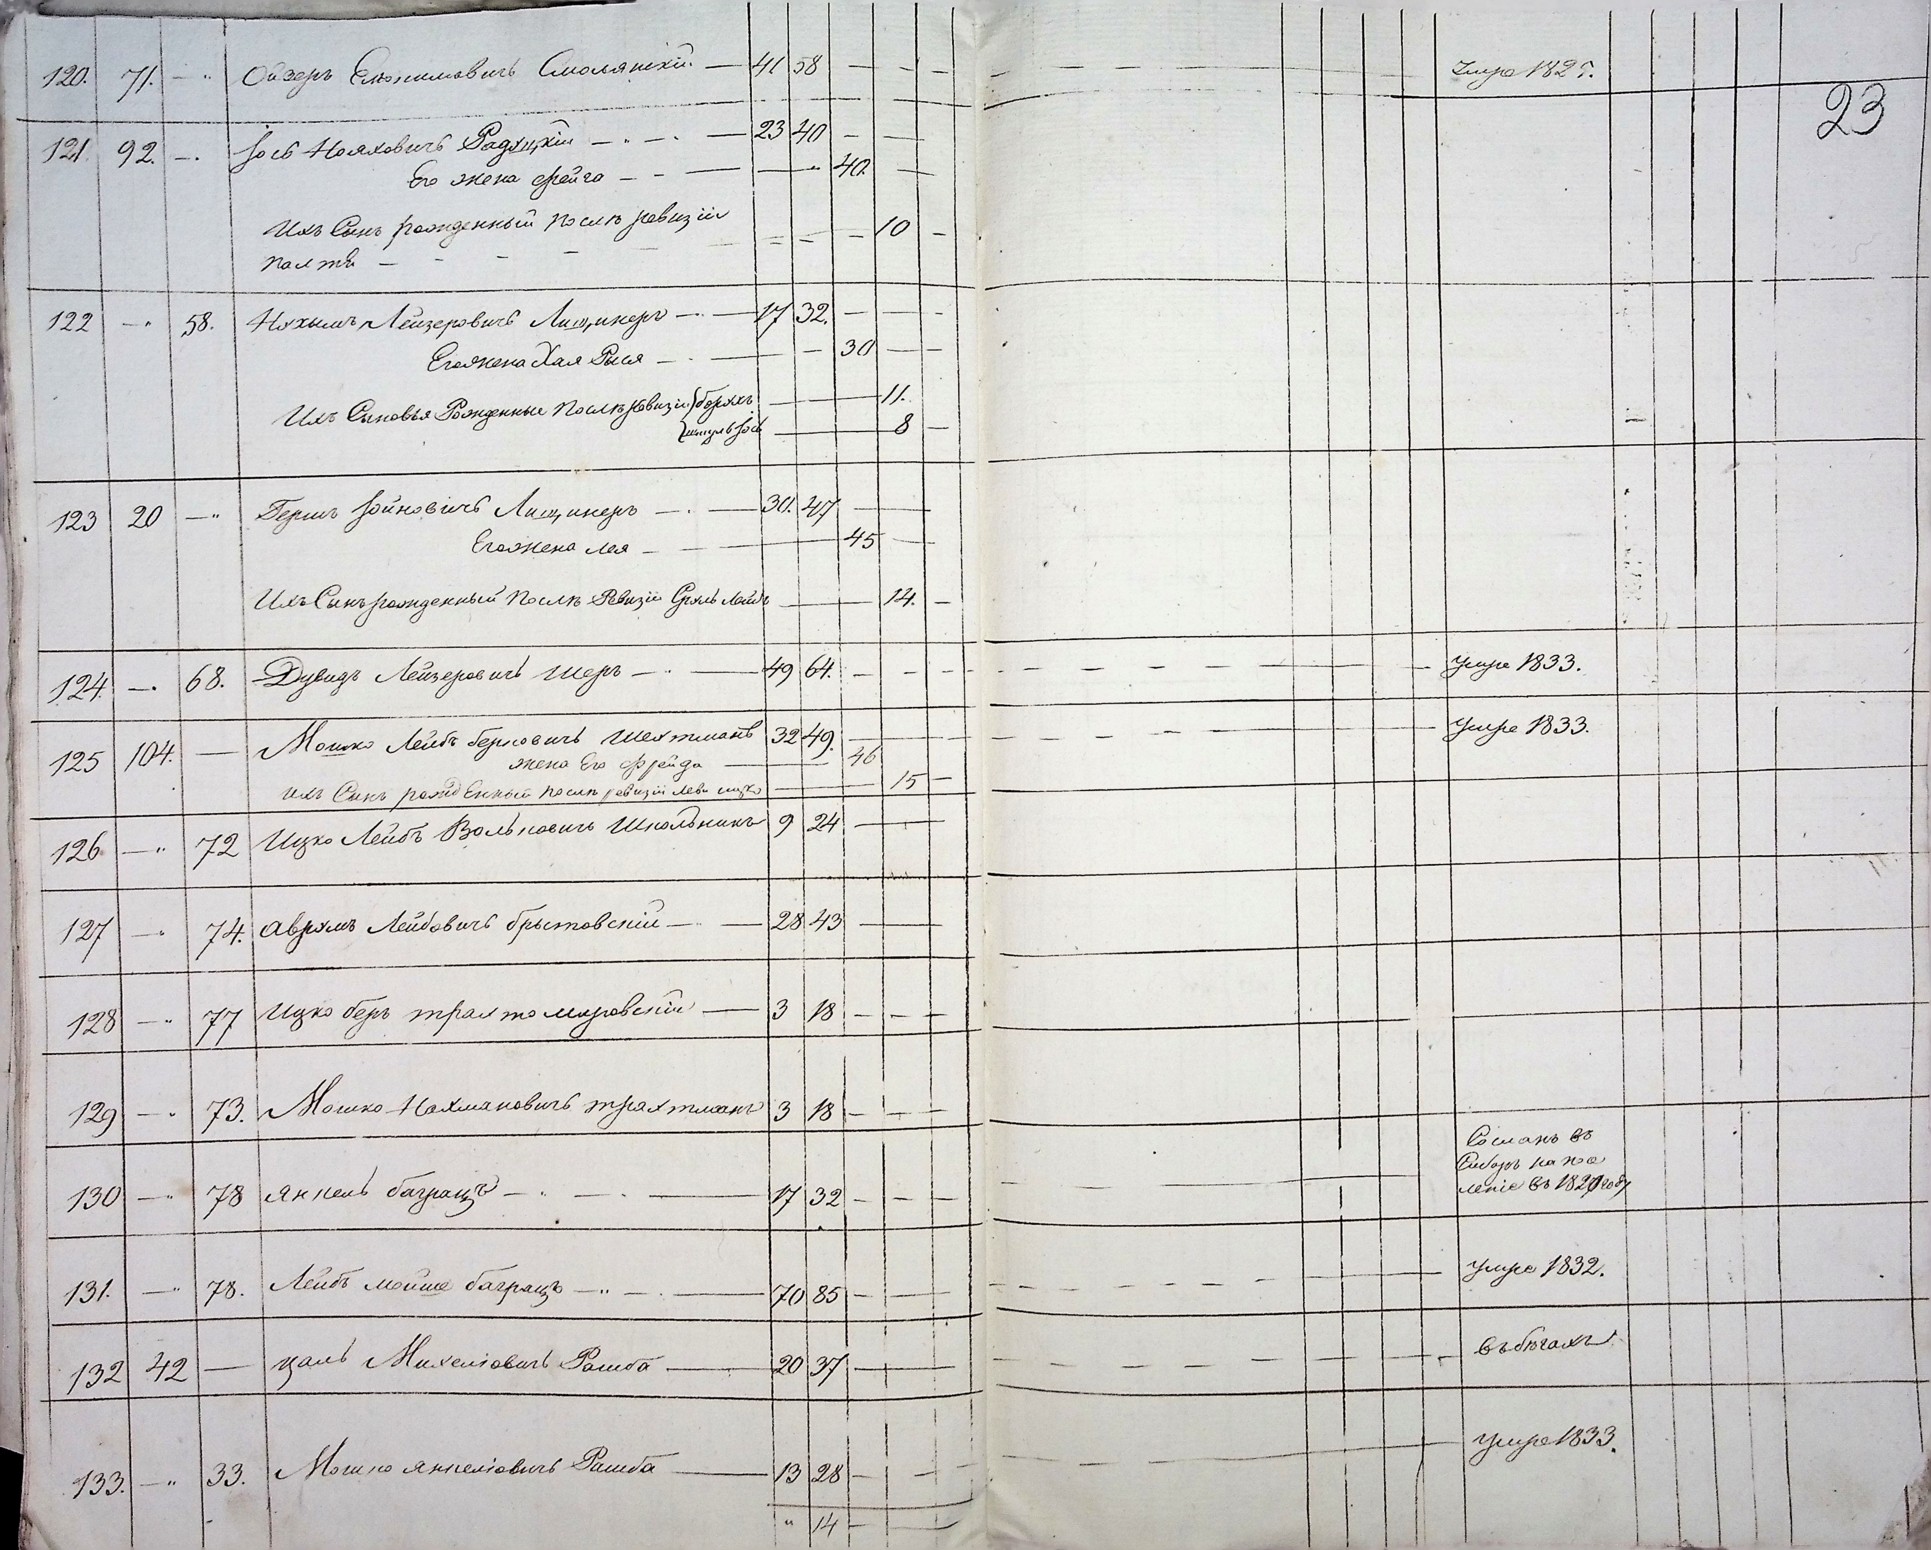 23
120. 71. — " Ойзеръ Смолянскій — 41 58 — — — умре 182
121 92. — . Іось Нояховичъ Радуцкій — " — . — 23 40 — —
Его жена фейга — - — — " 40. —
Ихъ Сынъ рожденный послѣ ревизіи — — — 10 —
— - - -
122 — " 58. Нухымъ Лейзеровичъ Лищинеръ — . — 17 32. — — —
Его жена Хая Рыся — . — — 30 — —
Ихъ Сыновья Рожденные послѣ ревизіи — — 11.
Іось — — 8 —
123 20 — " Гершъ Іойновичъ Лищинеръ — . — 30. 47 — —
Его жена лея — — 45 —
Ихъ Сынъ рожденный послѣ Ревизіи Сруль Лейбъ — — 14. —
124. — . 68. Дувидъ Лейзеровичъ Шеръ — . — 49 64. — — — умре 1833.
125 104. — Мошко Лейбъ берковичъ Шехтманъ 32 49. — — умре 1833.
жена Его фрейда — — 46
ихъ Сынъ рожденный послѣ ревизіи Леви ицко — — 15 —
126 — " 72 Ицко Лейбъ Вольковичъ Школьникъ 9 24 — —
127 — " 74. Аврумъ Лейбовичъ брытовскій — . — 28 43 — —
128 — " 77 Ицко беръ трахтомировскій — 3 18 — — —
129 — " 73. Мошко Нахмановичъ трахтманъ 3 18 — — —
130 — " 78 Янкель баграцъ — " — . — 17 32 — — — Сосланъ въ
Сибирь на посе
леніе въ 182 году
131. — " 78. Лейбъ мойше баграцъ — " — . — 70 85 — — умре 1832.
132 42 — цаль Михеліовичъ Рашба — 20 37 — — въ бѣгахъ
133. — " 33. Мошко янкеліовичъ Рашба — 13 28 — — — умре 1833.
" 14 — —